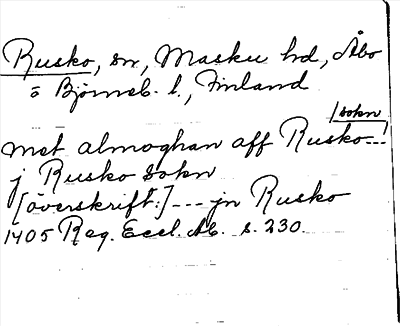 Rusko, sn, Masku hd, Åbo
o Björneb. l., Finland
sokn
met almoghan aff Rusko---!
j Rusko sokn
[överskrift:] --- jn Rusko
1405 Reg. Eccl. Ab. s. 230.